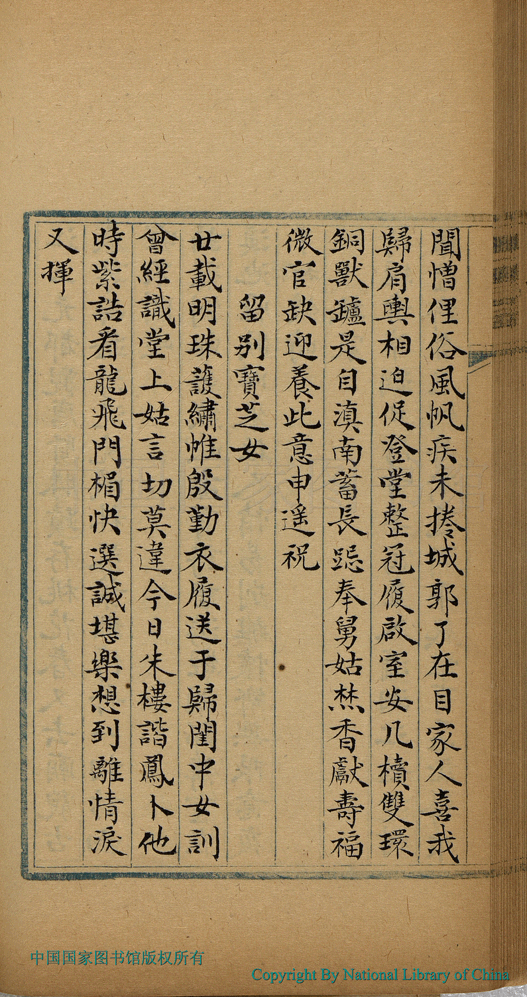 聞憎俚俗風帆疾未捲城郭了在目家人喜我
歸肩輿相迫促登堂整冠履啟室安几櫝雙環
銅獸鑪是自滇南蓄長跽奉舅姑焚香獻壽福
微官缺迎養此意申遥祝
留別寶芝女
廿載明珠護繡帷殷勤衣履送于歸閨中女訓
曾經識堂上姑言切莫違今日朱樓諧鳳卜他
時紫誥看龍飛門楣快選誠堪樂想到離情淚
又揮
中国国家图书馆版权所有
Copyright By National Library of China